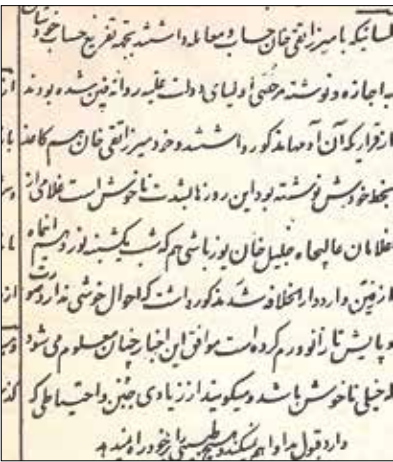 کسانیکه با میرزا تقی خان حساب و معامله داشتند بجهة تفریغ حساب خودشان
با اجازه و نوشته مرخصی اولیای دولت علیه روانه فین شده بودند
از قرار که آن آدمها مذکور داشتند و خود میرزا تقی خان هم کاغذ
بخط خودش نوشته بود این روزها بشدت ناخوش است غلامی از
غلامان عالیجاه جلیل خان یوزباشی هم که شب یکشنبه نوزدهم اینماه
از فین وارد دارالخلافه شد مذکور داشت که احوال خوشی ندارد صورت
و پایش تا زانو ورم کرده است موافق این اخبار چنان معلوم می شود
که خیلی ناخوش باشد و میگویند از زیادی جبن و احتیاطی که
دارد قبول مداوا هم نمیکند و هیچ طبیبی را بر خود راه نمیدهد